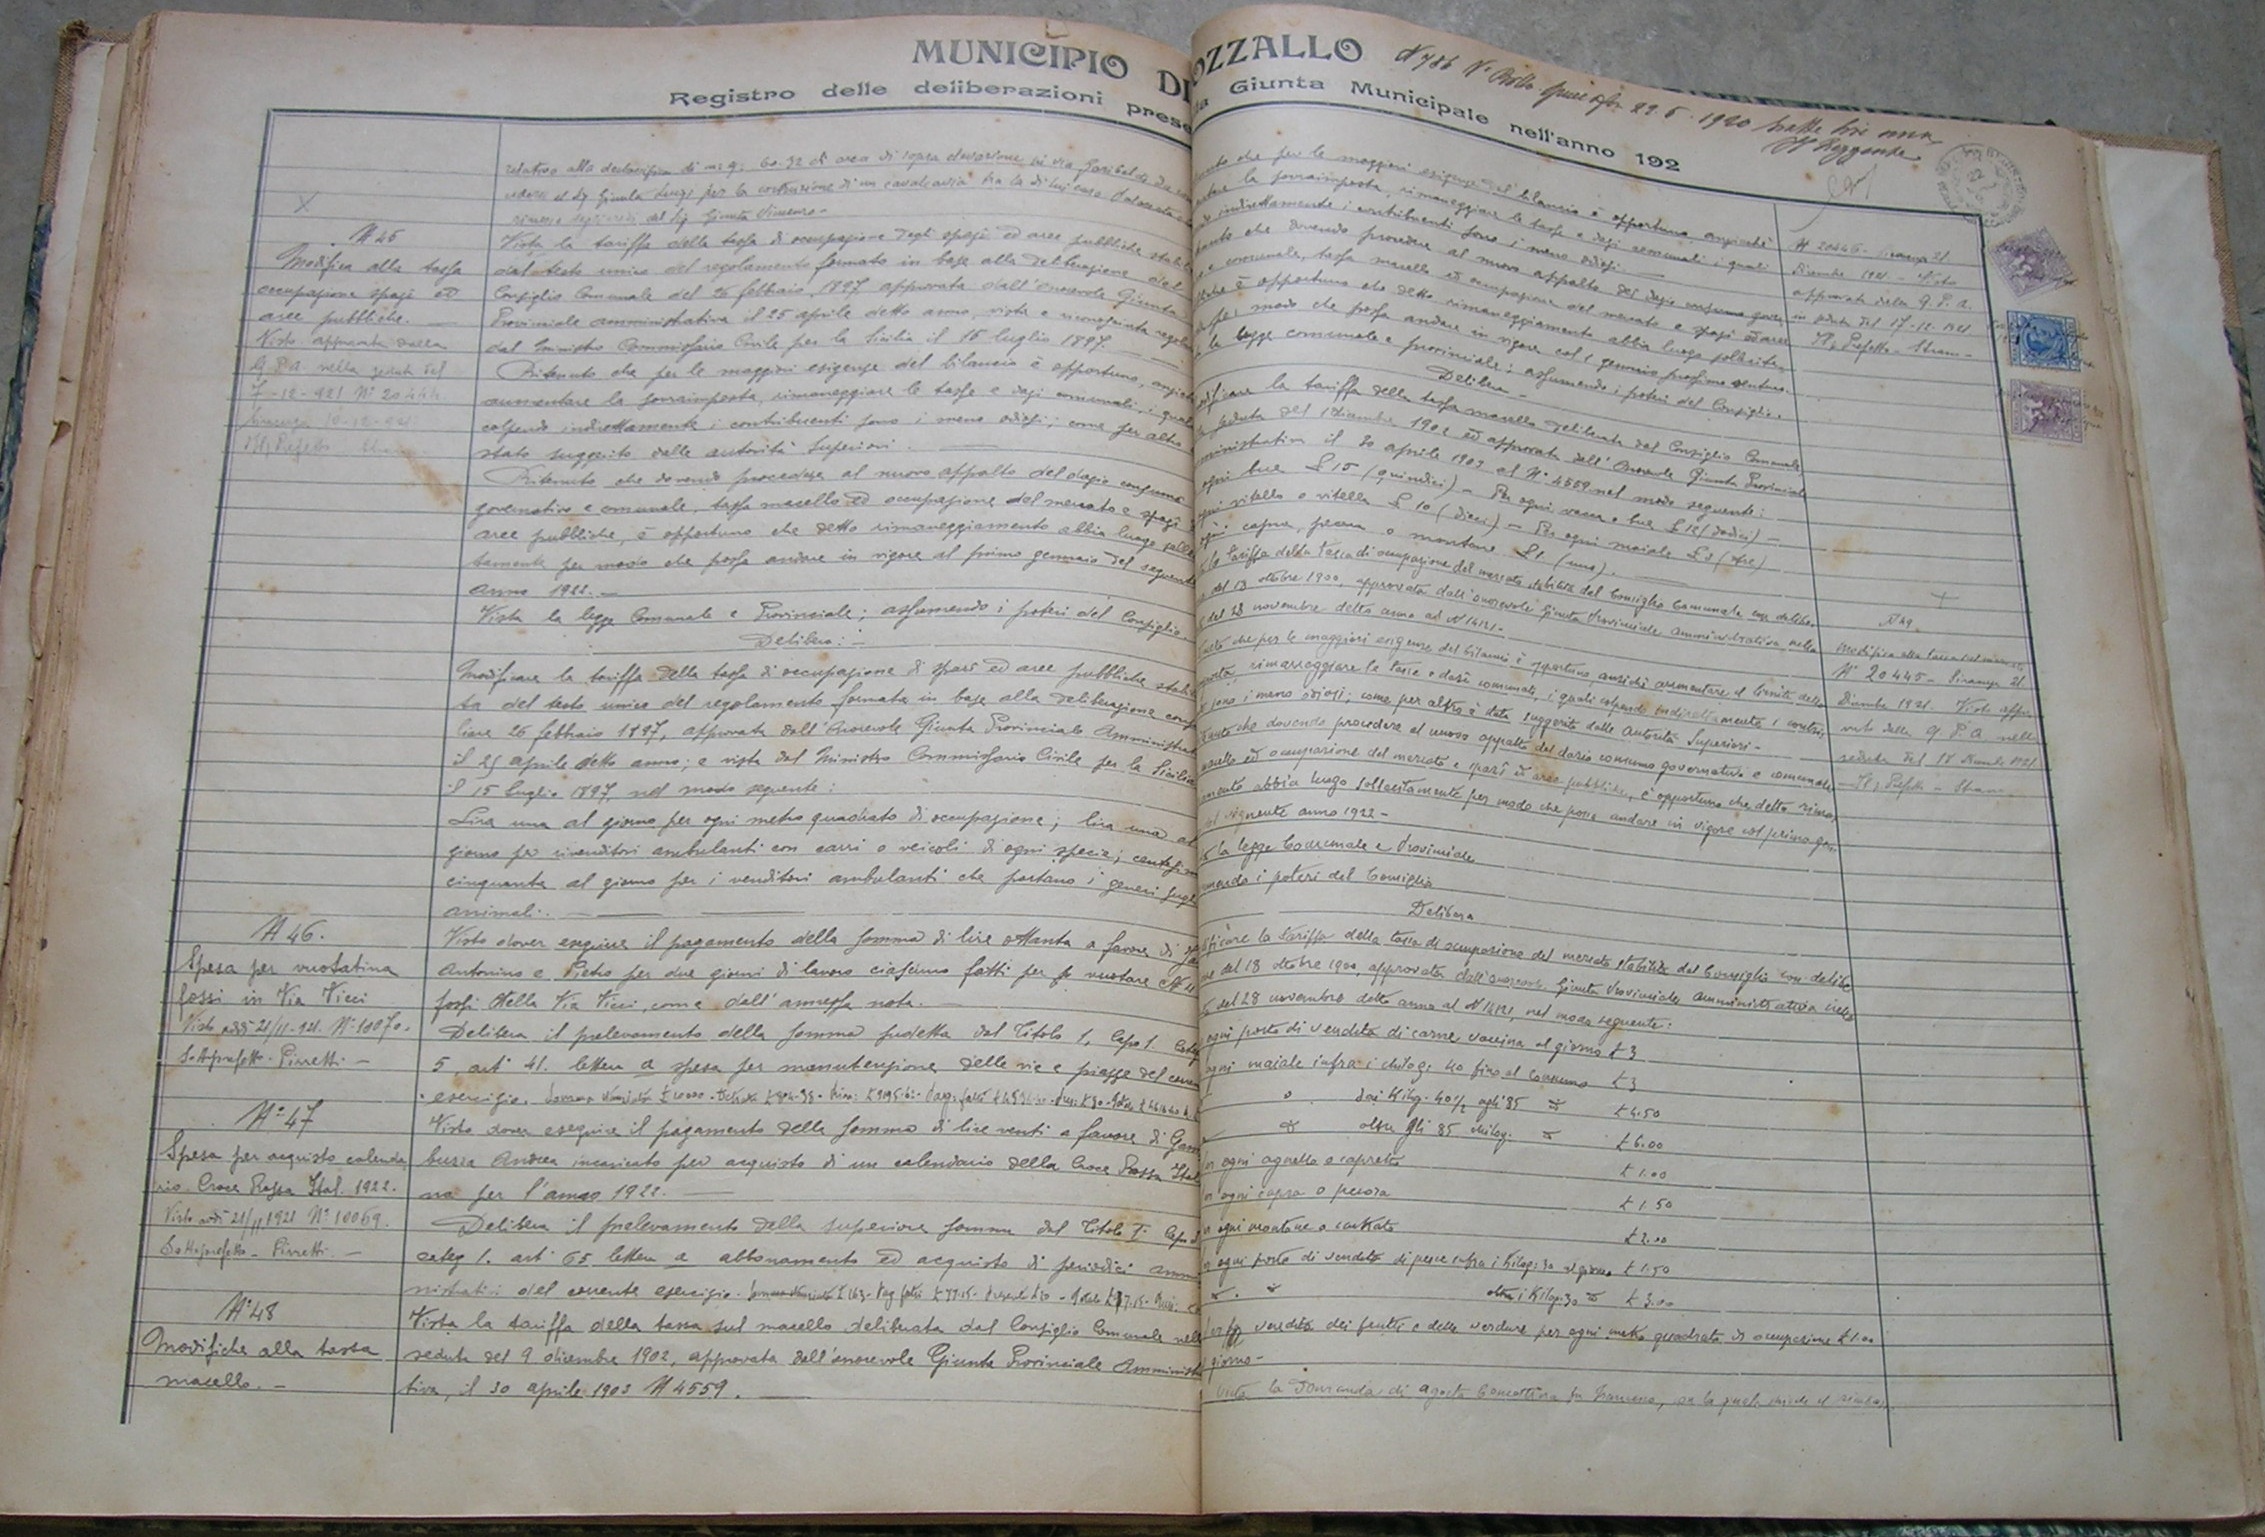 MUNICIPIO DI
Registro delle deliberazioni prese
relativo alla di mq: 60.32 di area di sopra elevazione in via Garibaldi da
cedersi al Sig. Giunta Luigi per la costruzione di un cavalcavia tra la di lui casa
del Sig. Giunta Vincenzo.
X
N 45
Modifica alla tassa
occupazione spazi ed
aree pubbliche. —
Visto approvata dalla
G. P. A. nella seduta del
7-12-921 N° 20444.
Siracusa
Il Prefetto
Vista la tariffa della tassa di occupazione degli spazi ed aree pubbliche stabi
dal testo unico del regolamento formato in base alla deliberazione del
Consiglio Comunale del 26 febbraio 1897 approvata dall'onorevole Giunta
Provinciale amministrativa il 25 aprile detto anno, vista e riconosciuta regola
dal Ministro Commissario Civile per la Sicilia il 15 luglio 1897.
Ritenuto che per le maggiori esigenze del bilancio è opportuno, anzichè
aumentare la sovraimposta, rimaneggiare le tasse e dazi comunali, i quali
colpendo indirettamente i contribuenti sono i meno odiosi; come per altro
stato suggerito dalle autorità superiori. —
Ritenuto che dovendo procedere al nuovo appalto del dazio consumo
governativo e comunale, tassa macello ed occupazione del mercato e spazi
aree pubbliche, è opportuno che detto rimaneggiamento abbia luogo solle
tamente per modo che possa andare in vigore al primo gennaio del seguente
anno 1922. —
Vista la legge Comunale e Provinciale; assumendo i poteri del Consiglio
Delibera: —
Modificare la tariffa della tassa di occupazione di spazi ed aree pubbliche stabi
ta del testo unico del regolamento formato in base alla deliberazione consi
liare 26 febbraio 1897, approvata dall'Onorevole Giunta Provinciale Amministrat
il 25 aprile detto anno; e vista dal Ministro Commissario Civile per la Sicilia
il 15 luglio 1897, nel modo seguente:
Lira una al giorno per ogni metro quadrato di occupazione; lira una al
giorno per rivenditori ambulanti con carri o veicoli di ogni specie; centesimi
cinquanta al giorno per i venditori ambulanti che portano i generi sugli
animali. —
N 46.
Spesa per vuotatina
fossi in Via Vicci
Visto addì 21/11-921. N° 10070.
Sottoprefetto - Pirretti. —
Visto dover eseguire il pagamento della somma di lire ottanta a favore di
Antonino e Pietro per due giorni di lavoro ciascuno fatti per vuotare N 11
fossi della Via Vicci, come dall'annessa nota. —
Delibera il prelevamento della somma sudetta dal Titolo 1, Capo 1. Categ
5, art 41. lettera a spesa per manutenzione delle vie e piazze del corren
esercizio.
N° 47
Spesa per acquisto calenda
rio Croce Rossa Ital. 1922.
Visto addì 21/11 1921 N° 10069.
Sottoprefetto - Pirretti. —
Visto dover eseguire il pagamento della somma di lire venti a favore di Gam
buzza Andrea incaricato per acquisto di un calendario della Croce Rossa Ital
na per l'anno 1922. —
Delibera il prelevamento della superiore somma dal Titolo 1° Capo
categ 1. art 65 lettera a abbonamento ed acquisto di periodici ammi
nistrativi del corrente esercizio.
N° 48
Modifiche alla tassa
macello. —
Vista la tariffa della tassa sul macello deliberata dal Consiglio Comunale nella
seduta del 9 dicembre 1902, approvata dall'onorevole Giunta Provinciale Amministra
tiva, il 30 aprile 1903 N 4559. —
OZZALLO
la Giunta Municipale nell'anno 192
N 786 22.6.1920 Il Reggente
che per le maggiori esigenze del bilancio è opportuno, anzichè
la sovraimposta, rimaneggiare le tasse e dazi comunali, i quali
indirettamente i contribuenti sono i meno odiosi. —
che dovendo procedere al nuovo appalto del dazio consumo gover
e comunale, tassa macello ed occupazione del mercato e spazi ed aree
è opportuno che detto rimaneggiamento abbia luogo sollecita
per modo che possa andare in vigore col 1 gennaio prossimo venturo.
la legge comunale e provinciale; assumendo i poteri del Consiglio.
Delibera —
la tariffa della tassa macello deliberata dal Consiglio Comunale
seduta del 9 dicembre 1902 ed approvata dall'Onorevole Giunta Provinciale
amministrativa il 30 aprile 1903 al N. 4559 nel modo seguente:
ogni bue £ 15 (quindici) — Per ogni vacca o bue £ 12 (dodici) —
ogni vitello o vitella £ 10 (dieci) — Per ogni maiale £ 3 (tre)
ogni capra, pecora o montone £ 1 (uno). —
la tariffa della tassa di occupazione del mercato stabilita dal Consiglio Comunale con delibe
del 18 ottobre 1900, approvata dall'onorevole Giunta Provinciale amministrativa nella
del 28 novembre detto anno al N 14121.
che per le maggiori esigenze del bilancio è opportuno anzichè aumentare il limite della
rimaneggiare le tasse e dazi comunali, i quali colpendo indirettamente i contri
sono i meno odiosi; come per altro è stato suggerito dalle autorità Superiori —
che dovendo procedere al nuovo appalto del dazio consumo governativo e comunale
macello ed occupazione del mercato e spazi ed aree pubbliche, è opportuno che detto rima
mento abbia luogo sollecitamente per modo che possa andare in vigore col primo gen
seguente anno 1922 —
la legge Comunale e Provinciale
assumendo i poteri del Consiglio
Delibera
la tariffa della tassa di occupazione del mercato stabilita dal Consiglio con delibe
del 18 ottobre 1900, approvata dall'onorevole Giunta Provinciale amministrativa nella
del 28 novembre detto anno al N 14121, nel modo seguente:
ogni posto di vendita di carne vaccina al giorno £ 3
ogni maiale infra i chilog: 40 fino al consumo £ 3
dai Kilog. 40½ agli 85 £ 4.50
oltre gli 85 chilog. £ 6.00
ogni agnello o capretto £ 1.00
ogni capra o pecora £ 1.50
ogni montone o castrato £ 2.00
ogni posto di vendita di pesce infra i Kilog: 30 al giorno £ 1.50
oltre i Kilog. 30 £ 3.00
vendita dei frutti e delle verdure per ogni metro quadrato di occupazione £ 1.00
giorno —
Vista la domanda di Agosta Concettina fu Francesco, con la quale chiede il rimbor
N 20446 - Siracusa 21
Dicembre 1921. - Visto
approvata dalla G. P. A.
in seduta del 17-12-1921
Il Prefetto - Stram —
N 49.
Modifica alla tassa sul mercato
N° 20445 - Siracusa 21
Dicembre 1921. Visto appro
vato dalla G. P. A nella
seduta del 17 Dicembre 1921.
Il Prefetto - Stram